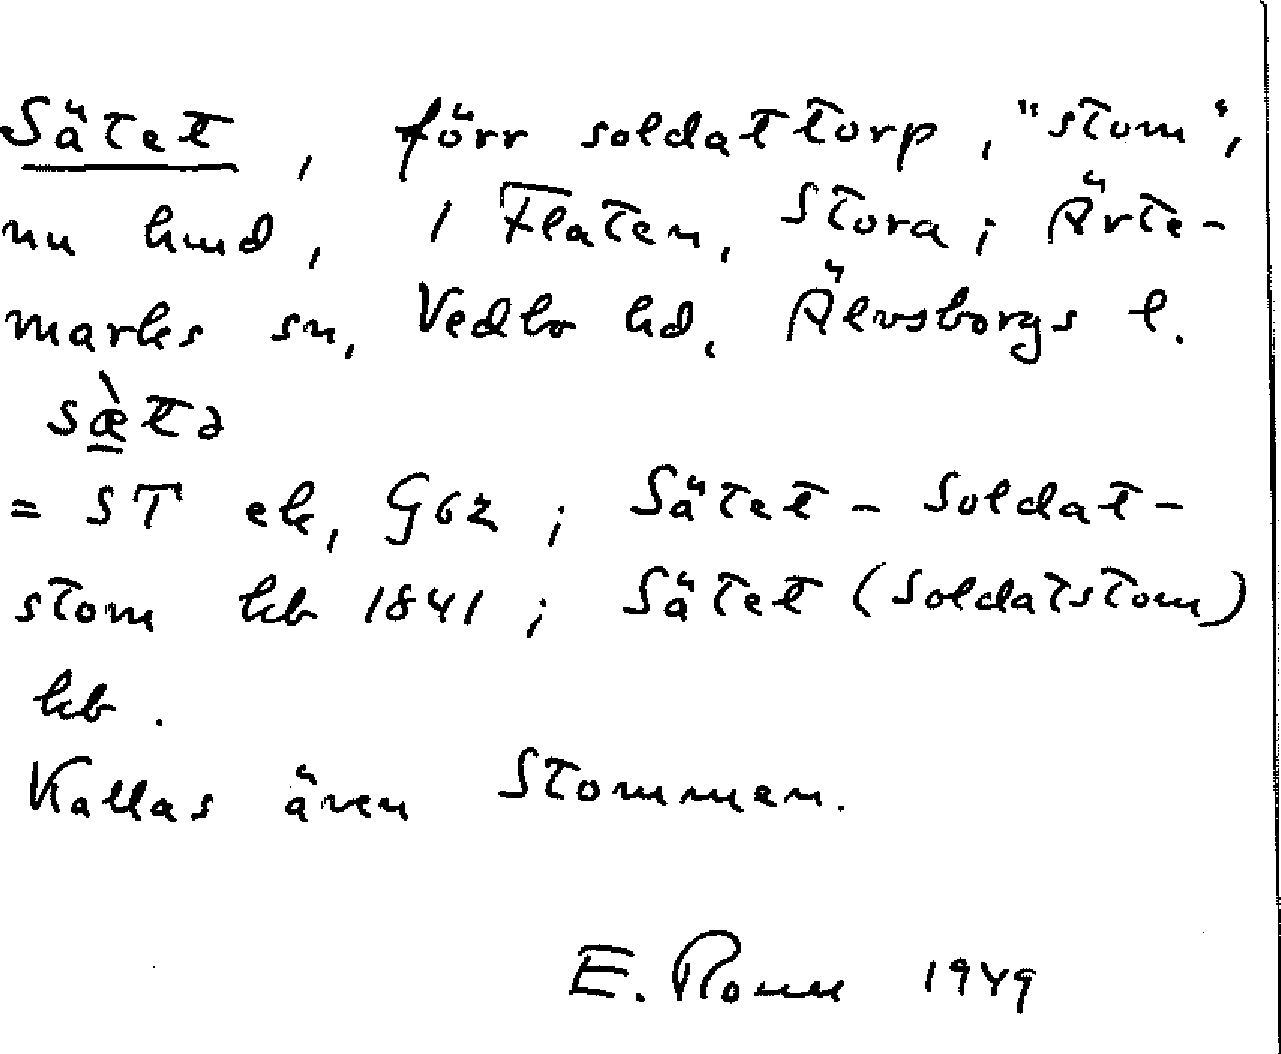 Sätet, förr soldattorp, "stom",
nu hmd, i Flaten, Stora; Ärte-
marks sn, Vedbo hd, Älvsborgs l.
sæ̀tə
= ST ek, G62; Sätet - Soldat-
stom kb 1841; Sätet (Soldatstom)
kb.
Kallas även Stommen.
E. 1949